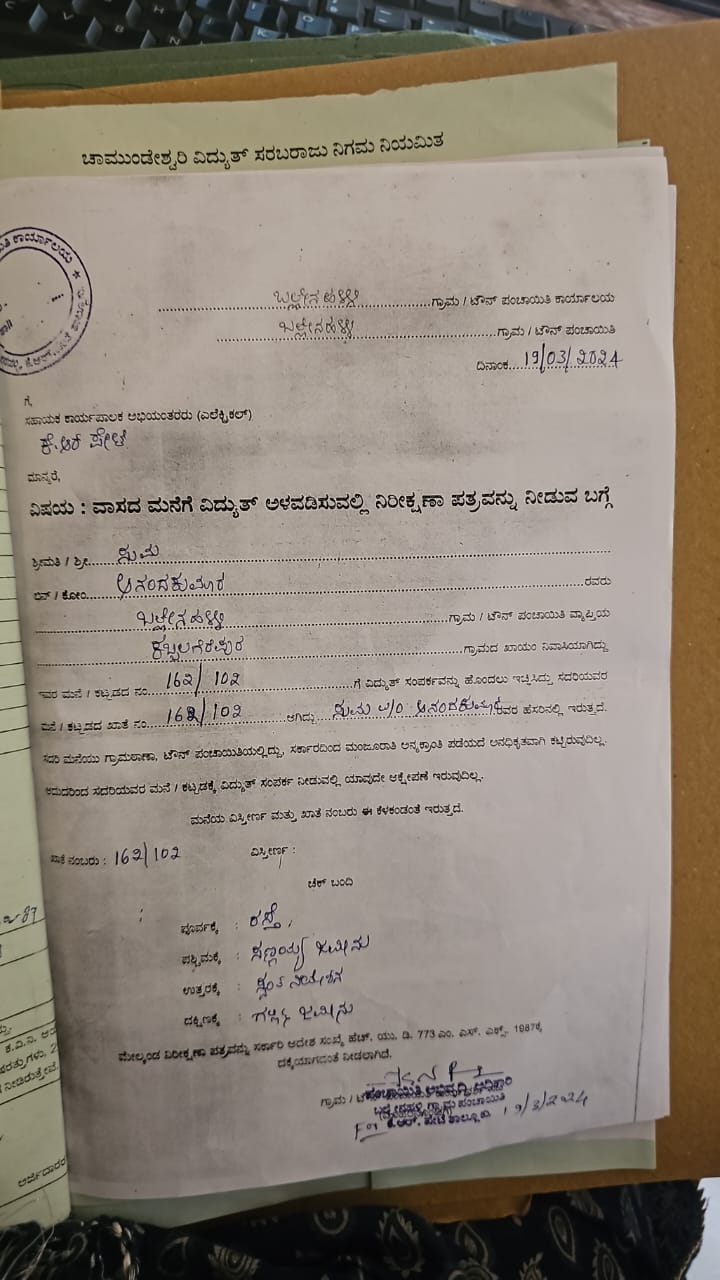 ಚಾಮುಂಡೇಶ್ವರಿ ವಿದ್ಯುತ್ ಸರಬರಾಜು ನಿಗಮ ನಿಯಮಿತ
ಬಲ್ಲೇನಹಳ್ಳಿ ಗ್ರಾಮ / ಟೌನ್ ಪಂಚಾಯಿತಿ ಕಾರ್ಯಾಲಯ
ಬಲ್ಲೇನಹಳ್ಳಿ ಗ್ರಾಮ / ಟೌನ್ ಪಂಚಾಯಿತಿ
ದಿನಾಂಕ 19/03/2024
ಗೆ,
ಸಹಾಯಕ ಕಾರ್ಯಪಾಲಕ ಅಭಿಯಂತರರು (ಎಲೆಕ್ಟ್ರಿಕಲ್)
ಕೆ.ಆರ್ ಪೇಟೆ
ಮಾನ್ಯರೆ,
ವಿಷಯ : ವಾಸದ ಮನೆಗೆ ವಿದ್ಯುತ್ ಅಳವಡಿಸುವಲ್ಲಿ ನಿರೀಕ್ಷಣಾ ಪತ್ರವನ್ನು ನೀಡುವ ಬಗ್ಗೆ
ಶ್ರೀಮತಿ / ಶ್ರೀ ಸುಮ
ಬಿನ್ / ಕೋಂ ಆನಂದಕುಮಾರ ರವರು
ಬಲ್ಲೇನಹಳ್ಳಿ ಗ್ರಾಮ / ಟೌನ್ ಪಂಚಾಯಿತಿ ವ್ಯಾಪ್ತಿಯ
ಕಬ್ಬಲಗೆರೆಪುರ ಗ್ರಾಮದ ಖಾಯಂ ನಿವಾಸಿಯಾಗಿದ್ದು
ಇವರ ಮನೆ / ಕಟ್ಟಡದ ನಂ 162/102 ಗೆ ವಿದ್ಯುತ್ ಸಂಪರ್ಕವನ್ನು ಹೊಂದಲು ಇಚ್ಛಿಸಿದ್ದು ಸದರಿಯವರ
ಮನೆ / ಕಟ್ಟಡದ ಖಾತೆ ನಂ 162/102 ಆಗಿದ್ದು ಸುಮ w/o ಆನಂದಕುಮಾರ ರವರ ಹೆಸರಿನಲ್ಲಿ ಇರುತ್ತದೆ.
ಸದರಿ ಮನೆಯು ಗ್ರಾಮಠಾಣಾ, ಟೌನ್ ಪಂಚಾಯಿತಿಯಲ್ಲಿದ್ದು, ಸರ್ಕಾರದಿಂದ ಮಂಜೂರಾತಿ ಅನ್ಯಕ್ರಾಂತಿ ಪಡೆಯದೆ ಅನಧಿಕೃತವಾಗಿ ಕಟ್ಟಿರುವುದಿಲ್ಲ.
ಆದುದರಿಂದ ಸದರಿಯವರ ಮನೆ / ಕಟ್ಟಡಕ್ಕೆ ವಿದ್ಯುತ್ ಸಂಪರ್ಕ ನೀಡುವಲ್ಲಿ ಯಾವುದೇ ಆಕ್ಷೇಪಣೆ ಇರುವುದಿಲ್ಲ.
ಮನೆಯ ವಿಸ್ತೀರ್ಣ ಮತ್ತು ಖಾತೆ ನಂಬರು ಈ ಕೆಳಕಂಡಂತೆ ಇರುತ್ತದೆ.
ಖಾತೆ ನಂಬರು : 162/102 ವಿಸ್ತೀರ್ಣ :
ಚೆಕ್ ಬಂದಿ
ಪೂರ್ವಕ್ಕೆ : ರಸ್ತೆ,
ಪಶ್ಚಿಮಕ್ಕೆ : ಸಣ್ಣಯ್ಯ ಜಮೀನು
ಉತ್ತರಕ್ಕೆ : ಸ್ವಂತ ನಿವೇಶನ
ದಕ್ಷಿಣಕ್ಕೆ : ಜಮೀನು
ಮೇಲ್ಕಂಡ ನಿರೀಕ್ಷಣಾ ಪತ್ರವನ್ನು ಸರ್ಕಾರಿ ಆದೇಶ ಸಂಖ್ಯೆ ಹೆಚ್. ಯು. ಡಿ. 773 ಎಂ. ಎನ್. ಎಕ್ಸ್. 1987ಕ್ಕೆ
ದಕ್ಕೆಯಾಗದಂತೆ ನೀಡಲಾಗಿದೆ.
ಗ್ರಾಮ /
ಪಂಚಾಯಿತಿ ಅಭಿವೃದ್ಧಿ ಅಧಿಕಾರಿ
ಬಲ್ಲೇನಹಳ್ಳಿ ಗ್ರಾಮ ಪಂಚಾಯಿತಿ
For ಕೆ.ಆರ್. ಪೇಟೆ ತಾಲ್ಲೂಕು. 19/3/2024
ಅರ್ಜಿದಾರರ